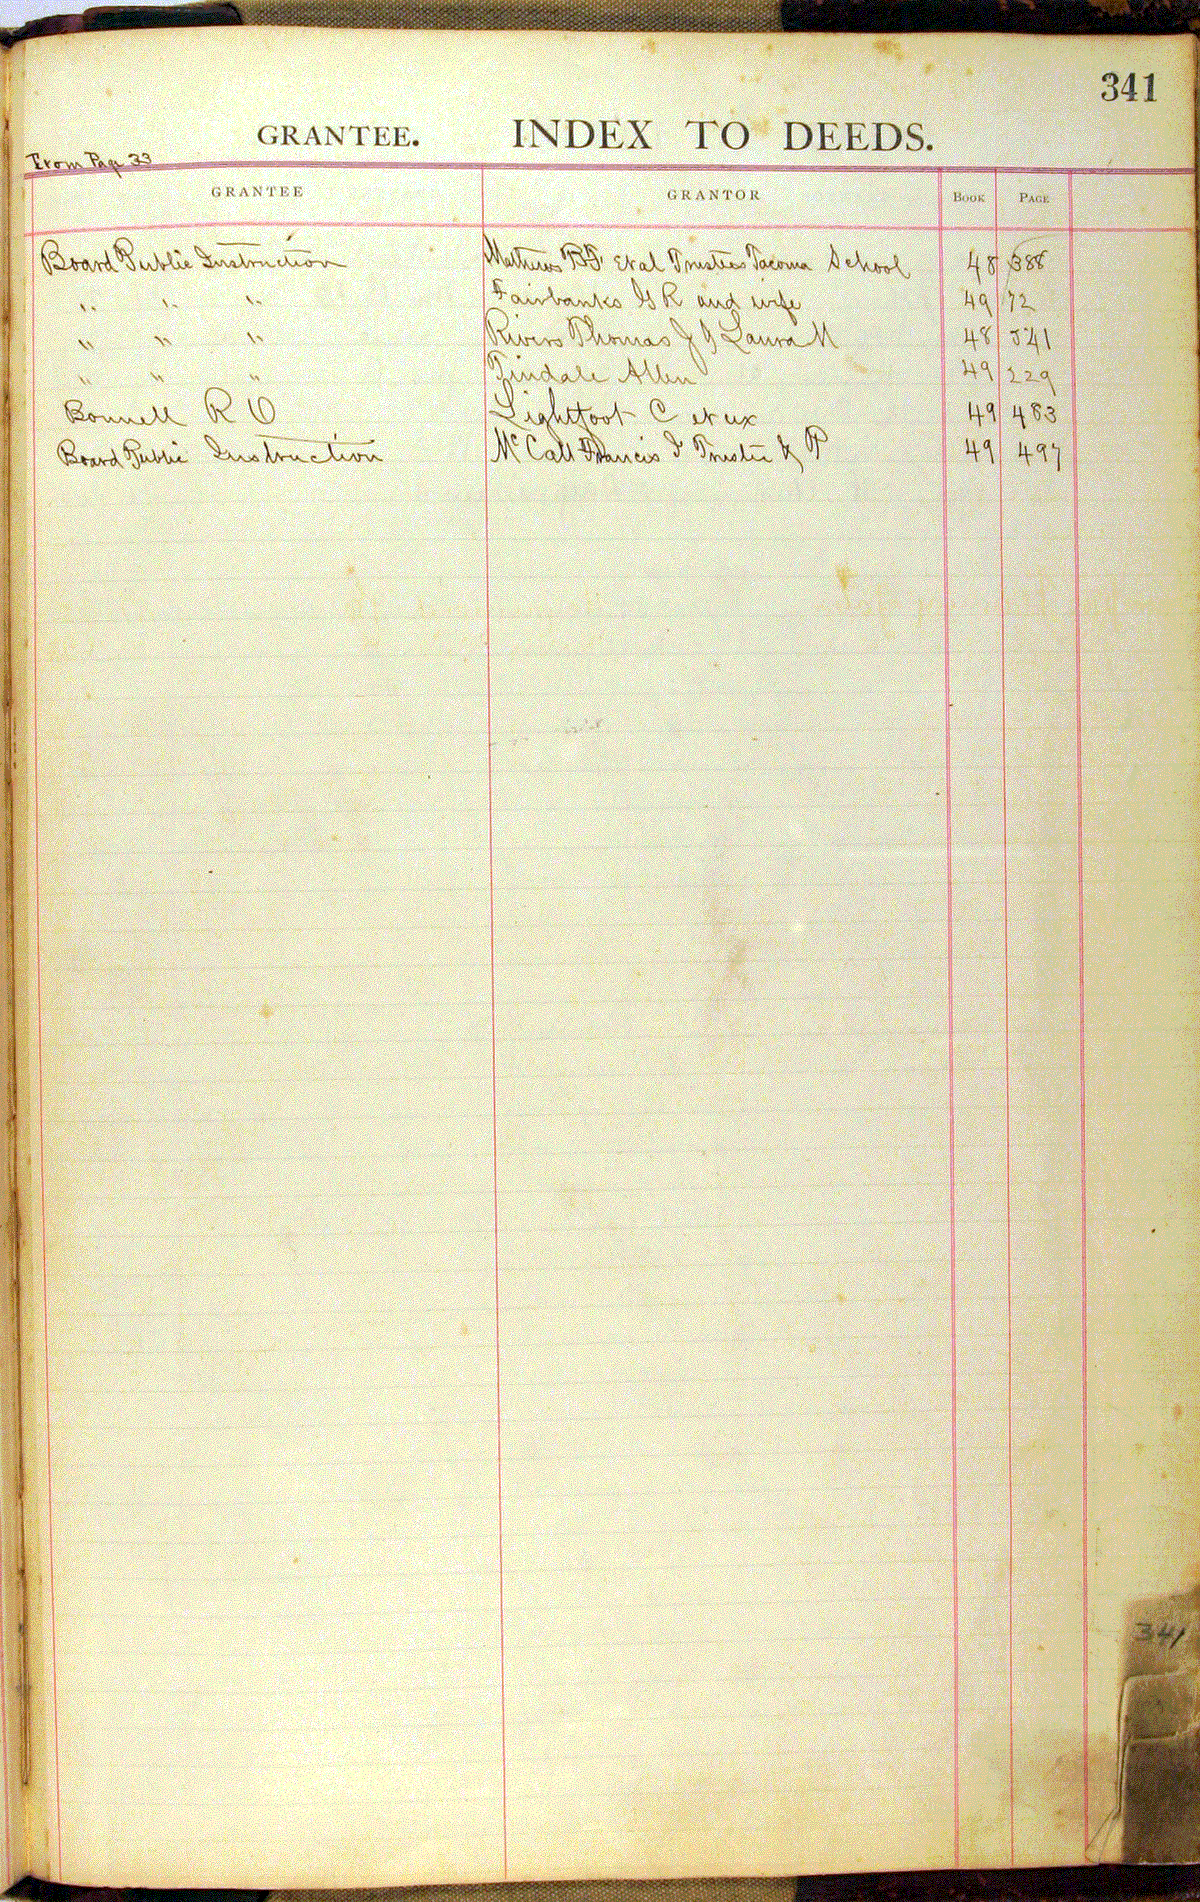 341
GRANTEE. INDEX TO DEEDS.
From Page 33
GRANTEE GRANTOR BOOK PAGE
Board Public Instruction Mathews et al Trustees Tacoma School 48 388
" " " Fairbanks G R and wife 49 72
" " " Rivers Thomas J & Laura M 48 541
" " " Tindale Allen 49 229
Bonnell R O Lightfoot C et ux 49 483
Board Public Instruction McCall Francis Trustee 49 497
341